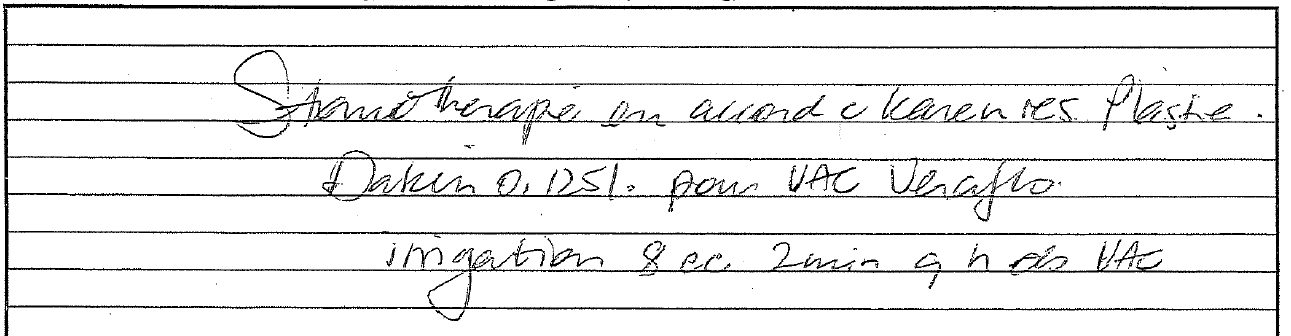 Stomothérapie en accord c Karen res Plastie.
Dakin 0,125%. pour VAC Veraflo.
irrigation 8 cc 2min q h ds VAC